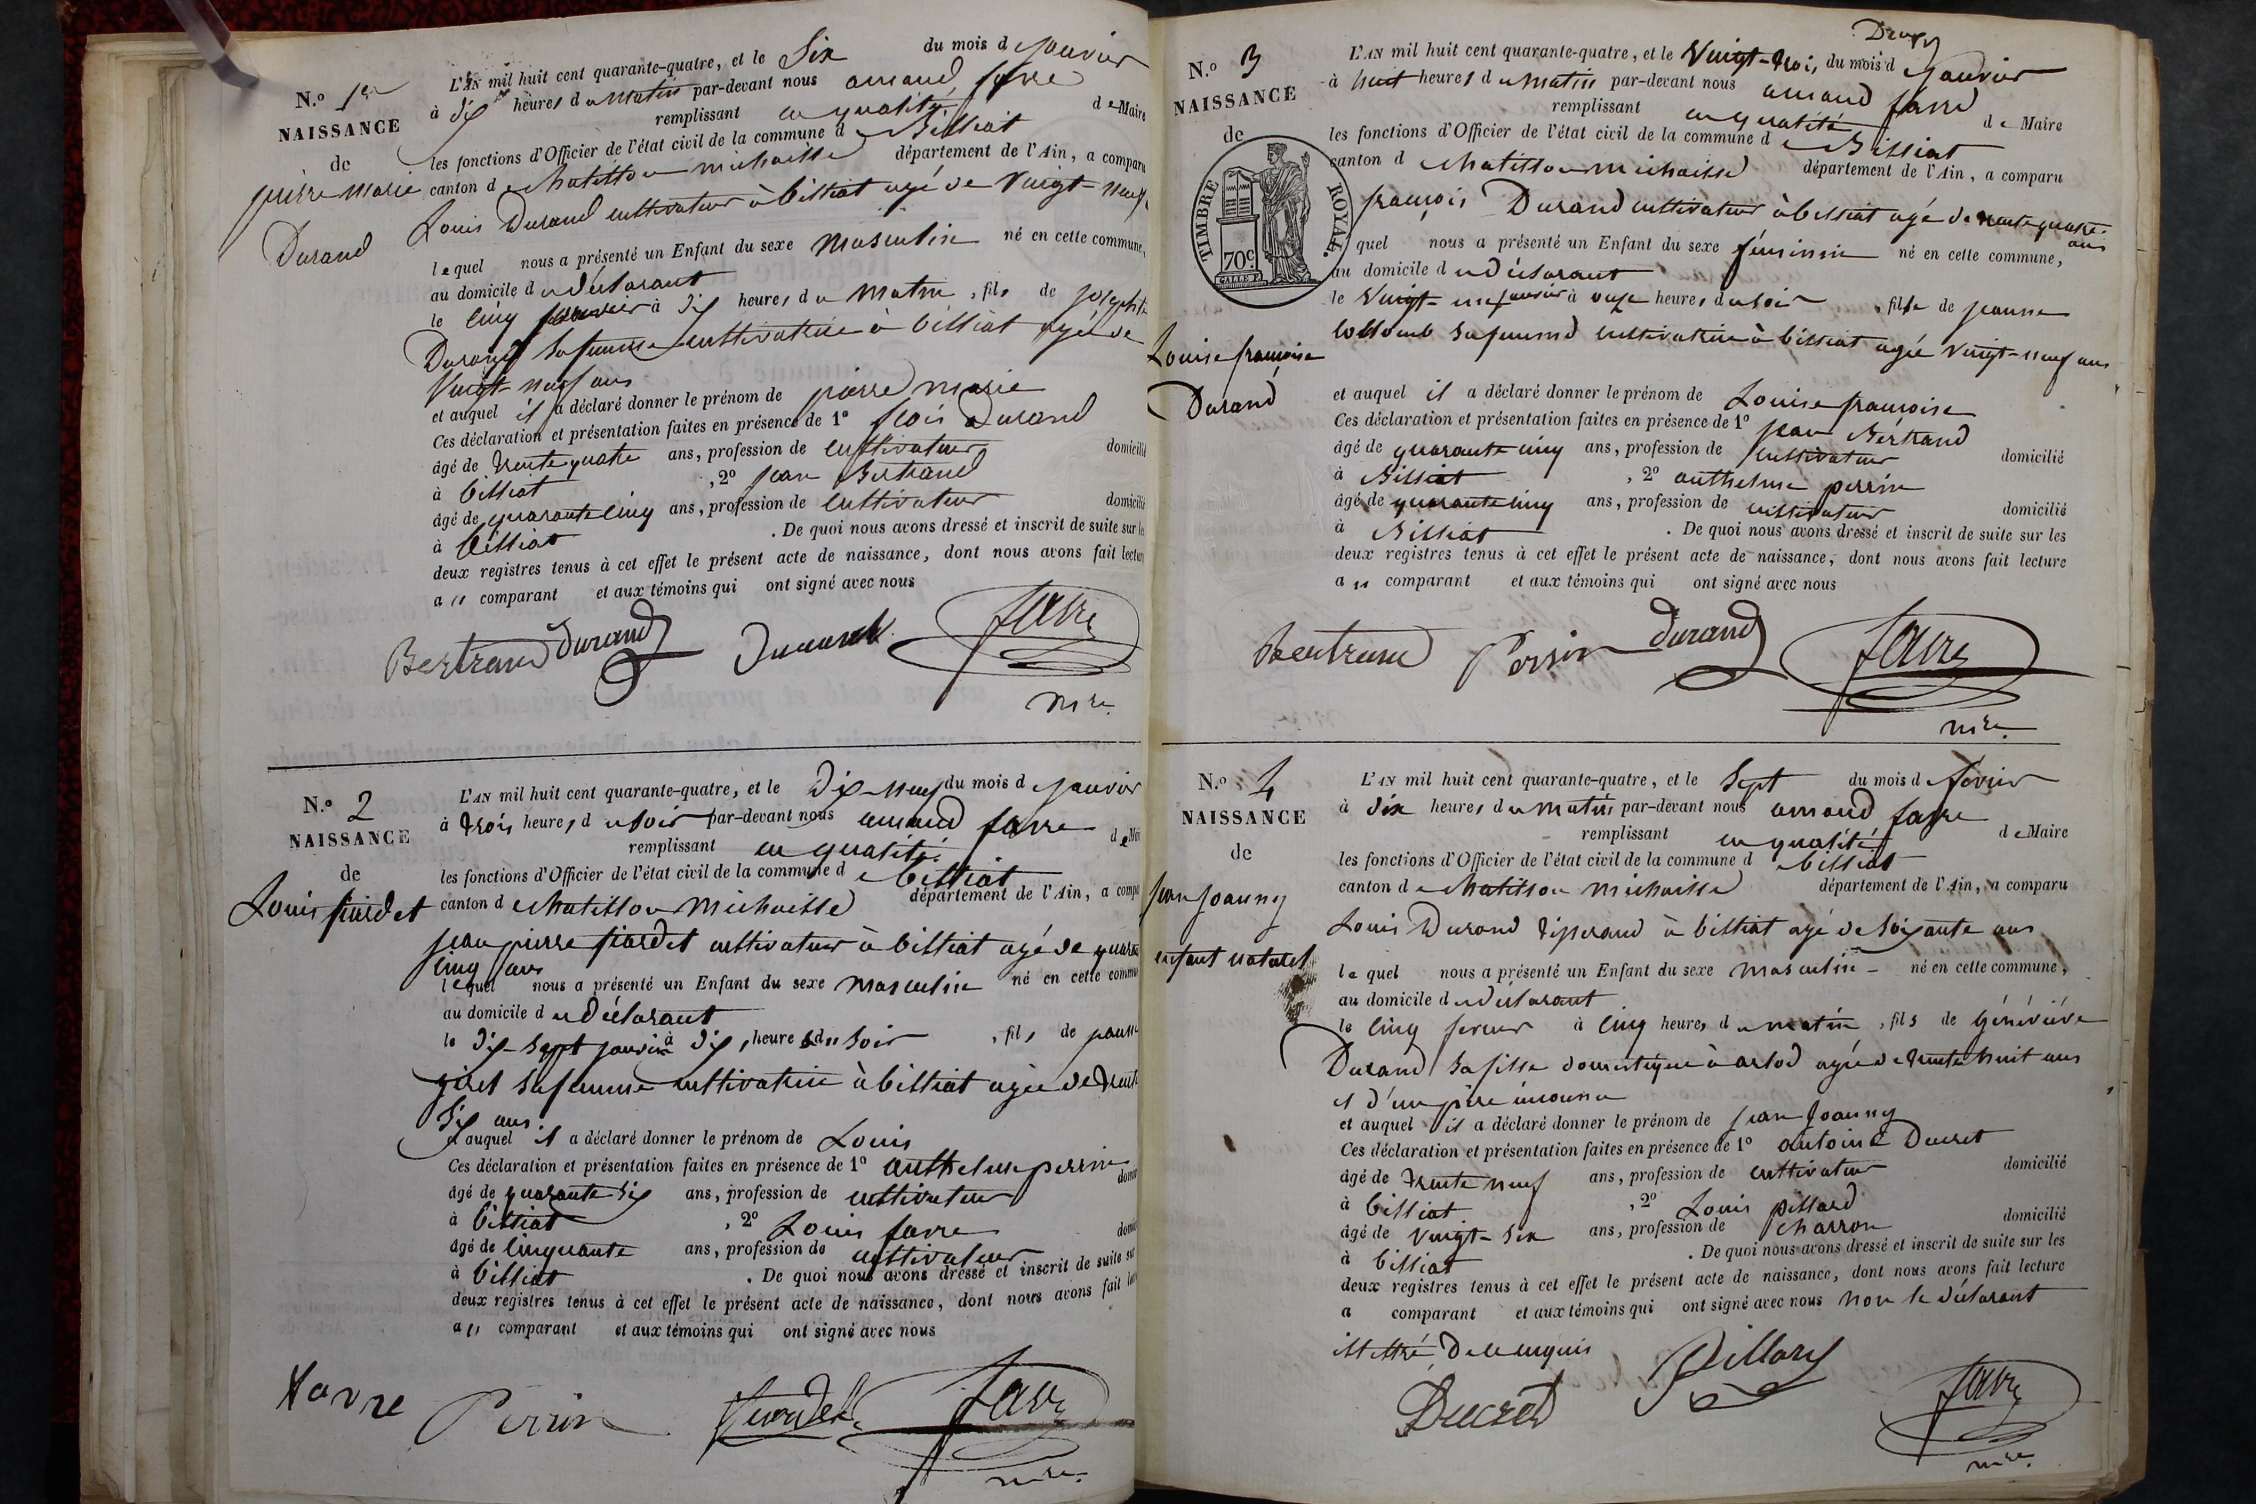 N.º 1er
NAISSANCE
de
pierre marie
Durand
L'AN mil huit cent quarante-quatre, et le Six du mois de janvier
à dix heures du matin par-devant nous amand favre
remplissant en qualité de Maire
les fonctions d'Officier de l'état civil de la commune de Billiat
canton de chatillon michaille département de l'Ain, a comparu
Louis Durand cultivateur à billiat agé de Vingt-neuf
lequel nous a présenté un Enfant du sexe masculin né en cette commune,
au domicile du déclarant
le cinq janvier à dix heures du matin, fils de josephte
Durand sa femme cultivatrice à billiat agée de
Vingt-neuf ans
et auquel il a déclaré donner le prénom de pierre marie
Ces déclaration et présentation faites en présence de 1º Durand
âgé de trente quatre ans, profession de cultivateur domicilié
à billiat, 2º jean Bertrand
âgé de quarante cinq ans, profession de cultivateur domicilié
à billiat. De quoi nous avons dressé et inscrit de suite sur les
deux registres tenus à cet effet le présent acte de naissance, dont nous avons fait lecture
au comparant et aux témoins qui ont signé avec nous
Bertrand Durand Durand favre
mre.
N.º 2
NAISSANCE
de
Louis fiardet
L'AN mil huit cent quarante-quatre, et le Dix-neuf du mois de janvier
à trois heures du soir par-devant nous amand favre
remplissant en qualité de Maire
les fonctions d'Officier de l'état civil de la commune de billiat
canton de chatillon michaille département de l'Ain, a comparu
jean pierre fiardet cultivateur à billiat agé de quarante
cinq ans
lequel nous a présenté un Enfant du sexe masculin né en cette commune
au domicile du déclarant
le dix-sept janvier à dix heures du soir, fils de jeanne
sa femme cultivatrice à billiat agée de trente
six ans
auquel il a déclaré donner le prénom de Louis
Ces déclaration et présentation faites en présence de 1º anthelme perrin
âgé de quarante six ans, profession de cultivateur
à billiat, 2º Louis favre
âgé de cinquante ans, profession de cultivateur
à billiat. De quoi nous avons dressé et inscrit de suite sur
deux registres tenus à cet effet le présent acte de naissance, dont nous avons fait
au comparant et aux témoins qui ont signé avec nous
favre Perrin favre
mre.
N.º 3
NAISSANCE
de
TIMBRE ROYAL.
70c
Louise françoise
Durand
L'AN mil huit cent quarante-quatre, et le Vingt-trois du mois de janvier
à huit heures du matin par-devant nous amand favre
remplissant en qualité de Maire
les fonctions d'Officier de l'état civil de la commune de Billiat
canton de chatillon michaille département de l'Ain, a comparu
françois Durand cultivateur à billiat agé de trente quatre
ans
quel nous a présenté un Enfant du sexe féminin né en cette commune,
au domicile du déclarant
le Vingt-un janvier à onze heures du soir, fille de jeanne
collomb sa femme cultivatrice à billiat agée vingt-neuf ans
et auquel il a déclaré donner le prénom de Louise françoise
Ces déclaration et présentation faites en présence de 1º jean Bertrand
âgé de quarante cinq ans, profession de cultivateur domicilié
à Billiat, 2º anthelme perrin
âgé de quarante cinq ans, profession de cultivateur domicilié
à Billiat. De quoi nous avons dressé et inscrit de suite sur les
deux registres tenus à cet effet le présent acte de naissance, dont nous avons fait lecture
au comparant et aux témoins qui ont signé avec nous
Bertrand Perrin Durand favre
mre.
N.º 4
NAISSANCE
de
jean joanny
enfant naturel
L'AN mil huit cent quarante-quatre, et le Sept du mois de fevrier
à dix heures du matin par-devant nous amand favre
remplissant en qualité de Maire
les fonctions d'Officier de l'état civil de la commune de billiat
canton de chatillon michaille département de l'Ain, a comparu
Louis Durand tisserand à billiat agé de soixante ans
lequel nous a présenté un Enfant du sexe masculin né en cette commune,
au domicile du déclarant
le cinq fevrier à cinq heures du matin, fils de géneviéve
Durand sa fille domestique à arlod agée de trente huit ans
et d'un père inconnu
et auquel il a déclaré donner le prénom de jean joanny
Ces déclaration et présentation faites en présence de 1º antoine Ducret
âgé de trente neuf ans, profession de cultivateur domicilié
à billiat, 2º Louis pillard
âgé de vingt-six ans, profession de charron domicilié
à billiat. De quoi nous avons dressé et inscrit de suite sur les
deux registres tenus à cet effet le présent acte de naissance, dont nous avons fait lecture
a comparant et aux témoins qui ont signé avec nous non le déclarant
illettré de ce enquis
Ducret Pillard favre
mre.